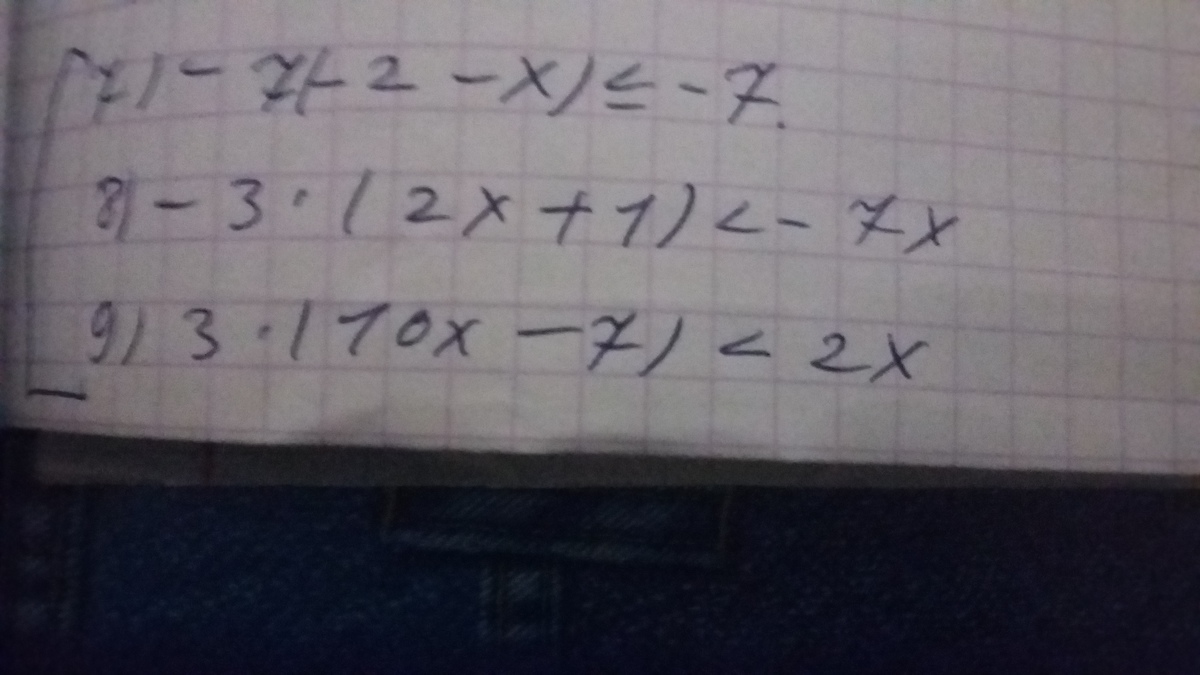 7) - 7(-2 - x) ≤ -7.
8) - 3 · (2x + 1) < - 7x
9) 3 · (10x - 7) < 2x